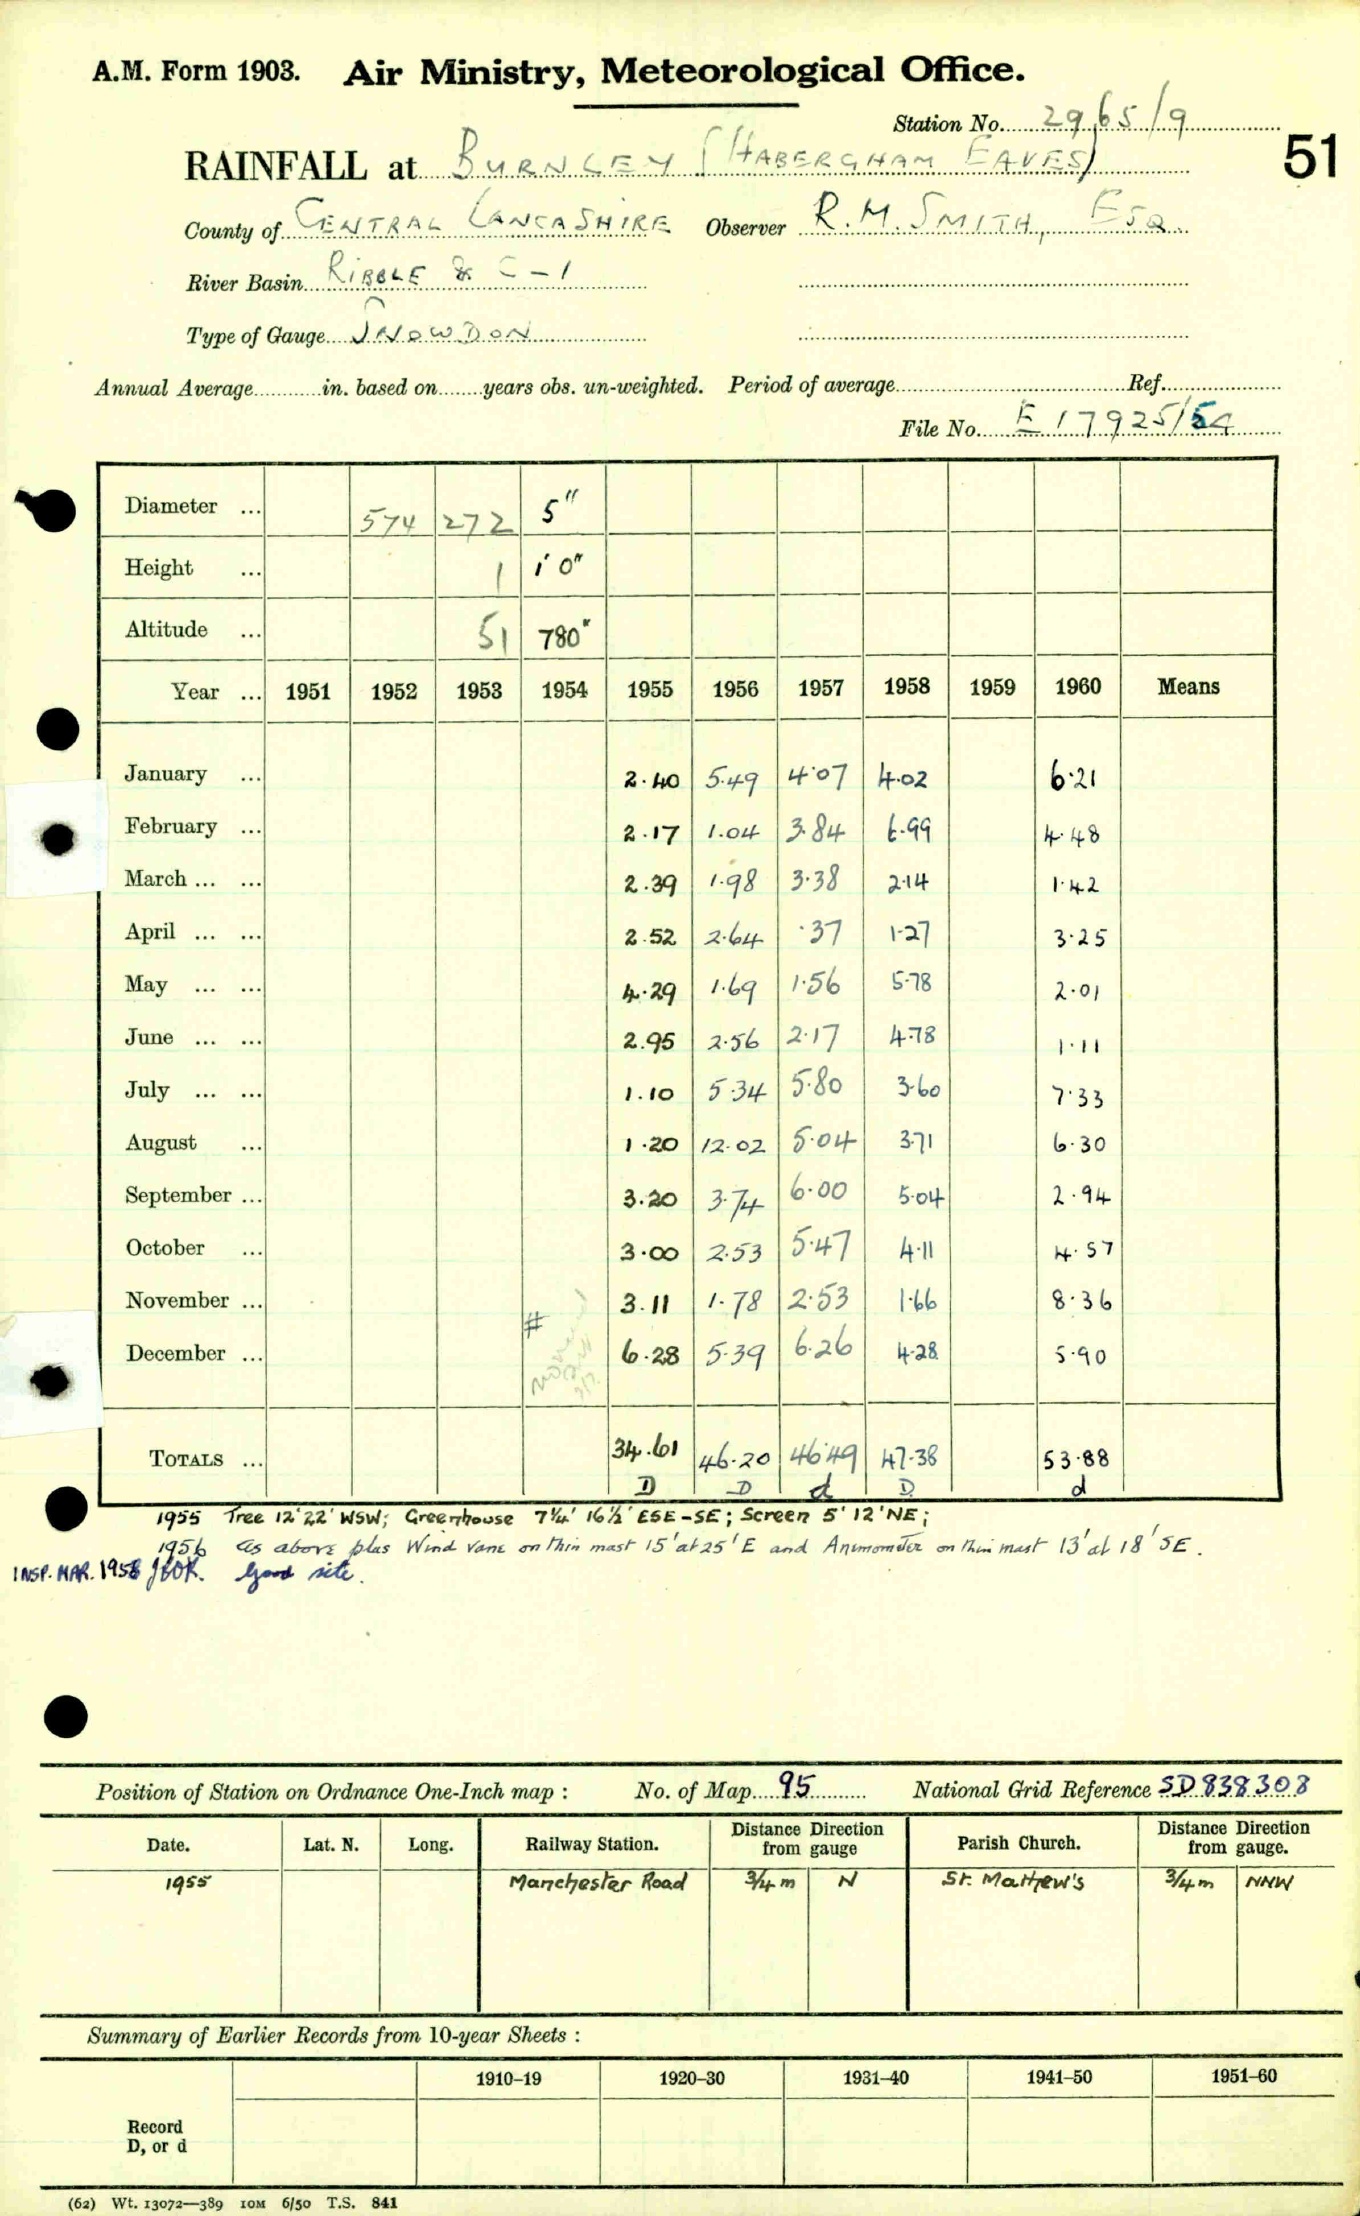 A.M. Form 1903. Air Ministry, Meteorological Office.
Station No. 2965/9
RAINFALL at BURNLEY (HABERGHAM EAVES) 51
County of CENTRAL LANCASHIRE Observer R.M. SMITH, ESQ.
River Basin RIBBLE & C-1
Type of Gauge SNOWDON
Annual Average in. based on years obs. un-weighted. Period of average Ref.
File No. E17925/54
Diameter ... 574 272 5"
Height ... 1 1' 0"
Altitude ... 51 780"
Year ... 1951 1952 1953 1954 1955 1956 1957 1958 1959 1960 Means
January ... 2.40 5.49 4.07 4.02 6.21
February ... 2.17 1.04 3.84 6.99 4.48
March ... ... 2.39 1.98 3.38 2.14 1.42
April ... ... 2.52 2.64 .37 1.27 3.25
May ... ... 4.29 1.69 1.56 5.78 2.01
June ... ... 2.95 2.56 2.17 4.78 1.11
July ... ... 1.10 5.34 5.80 3.60 7.33
August ... 1.20 12.02 5.04 3.71 6.30
September ... 3.20 3.74 6.00 5.04 2.94
October ... 3.00 2.53 5.47 4.11 4.57
November ... # 3.11 1.78 2.53 1.66 8.36
December ... 6.28 5.39 6.26 4.28 5.90
TOTALS ... 34.61 46.20 46.49 47.38 53.88
D D d D d
1955 Tree 12' 22' WSW; Greenhouse 7¼' 16½' ESE-SE; Screen 5' 12' NE;
1956 as above plus Wind vane on thin mast 15' at 25' E and Anemometer on thin mast 13' at 18' SE.
INSP. MAR. 1958 Good site.
Position of Station on Ordnance One-Inch map : No. of Map 95 National Grid Reference SD 838308
Date. Lat. N. Long. Railway Station. Distance Direction from gauge Parish Church. Distance Direction from gauge.
1955 Manchester Road ¾ m N St. Matthew's ¾ m NNW
Summary of Earlier Records from 10-year Sheets :
1910–19 1920–30 1931–40 1941–50 1951–60
Record
D, or d
(62) Wt. 13072—389 10M 6/50 T.S. 841